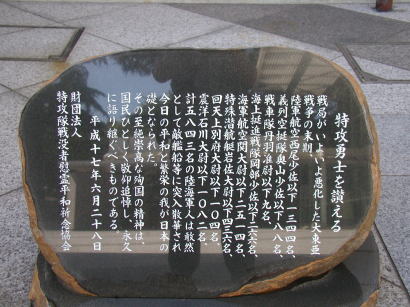 特攻勇士を讃える
戦局がいよいよ悪化した大東亜
戦争の末期、
陸軍航空西尾少佐以下一三四四名、
義烈空挺隊奥山少佐以下八八名、
戦車隊丹羽准尉以下九名、
海上挺進戦隊岡部少佐以下二六六名、
海軍航空関大尉以下二五一四名、
特殊潜航艇岩佐大尉以下四三六名、
回天上別府大尉以下一〇四名
震洋石川大尉以下一〇八二名、
計五八四三名の陸海軍人は敢然
として敵艦船等に突入散華され
今日の平和と繁栄の我が日本の
礎となられた。
その至純崇高な殉国の精神は、
国民ひとしく敬仰追悼し、永久
に語り継ぐべきものである。
平成十七年六月二十八日
財団法人
特攻隊戦没者慰霊平和祈念協会